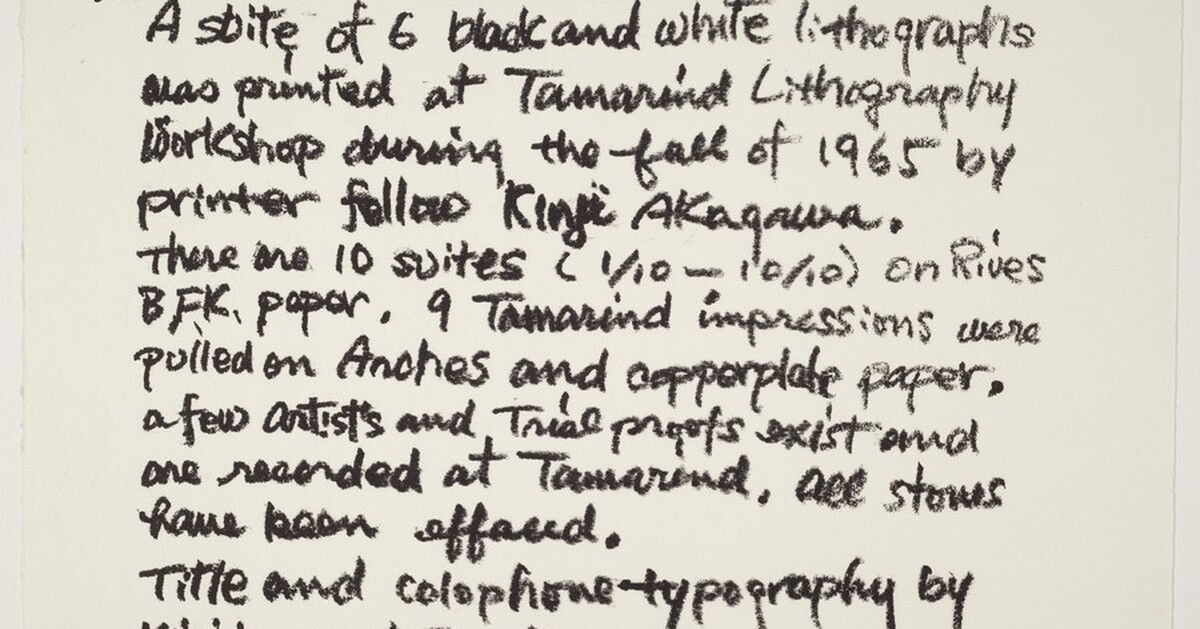 A suite of 6 black and white lithographs
was printed at Tamarind Lithography
Workshop during the fall of 1965 by
printer fellow Kinji Akagawa.
There are 10 suites (1/10 – 10/10) on Rives
BFK. paper. 9 Tamarind impressions were
pulled on Arches and copperplate paper.
a few artist's and Trial proofs exist and
are recorded at Tamarind. all stones
have been effaced.
Title and colophone typography by